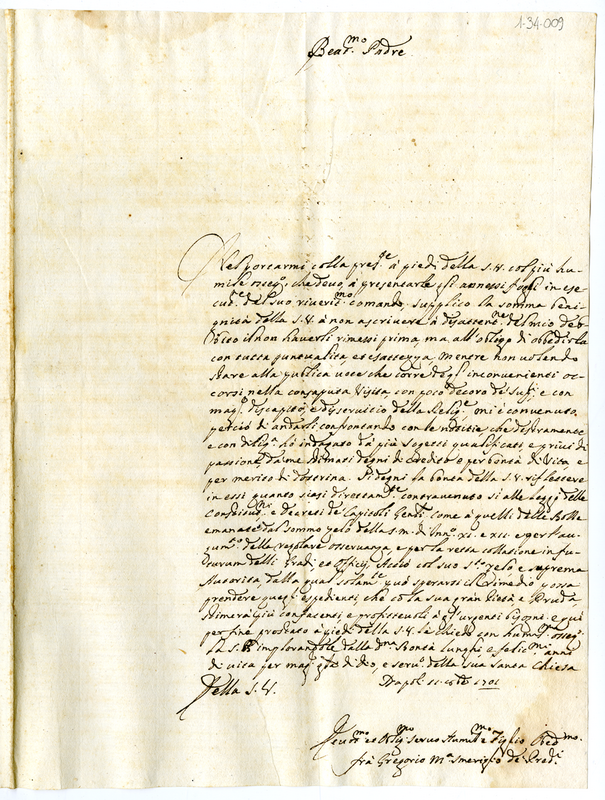 1-34-009
Beat.mo Padre
Nel portarmi colla pres.te à piedi della S.V. col più hu-
mile osseq.o, che devo, à presentarle gli annessi fogli in ese-
cud.e del suo riverit.mo comando, supplico la somma beni-
gnità della S.V. à non ascrivere à del mio deb-
ito il non haverli rimessi prima, ma all'obligo di obbedirla
con tutta puntualità, et esattezza, mentre non volendo
stare alla publica voce che corre degl' inconvenienti oc-
corsi nella consaputa Visita, con poco decoro de' Sup.ri e con
mag.r discapito, e disservicio della Relig.e mi è convenuto,
perciò di andarli confrontando con le notitie che destramente
e con dilig.a hò indagato dà più sogetti qualificati, e privi di
passione, da me stimati degni di credito e per bontà di Vita e
per merito di dottrina. Si degni la bontà della S.V. riflettere
in essi quanto siasi direttam.te contravenuto sì alle leggi delle
Constitut.ni e decreti de Capitoli Gen.li come à quelli delle Bolle
emanate dal sommo zelo della s.m. di Inn.o XI. e XII. e per l'au-
gum.o della regolare osservanza, e per la retta collatione in fu-
turum delli Gradi et Officij. Acciò col suo S.to zelo e suprema
Autorità, dalla qual solam.te può sperarsi il rimedio, possa
prendere quegl' espedienti, che cò la sua gran Pietà e Prud.a
stimerà più confacenti, e profittevoli à gl' urgenti bisogni, e qui
per fine prostrato à piedi della S.V. la chiedo con humil.mo osseq.o
la S.B. implorandole dalla D.na Bontà lunghi e felic.mi anni
di vita per mag.r g.la di Dio, e serv.o della Sua Santa Chiesa
Napoli 1701
Della S.V.
et Oblig.mo Servo Humil.mo e Figlio Obed.mo
frà Gregorio M.a de Pred.i